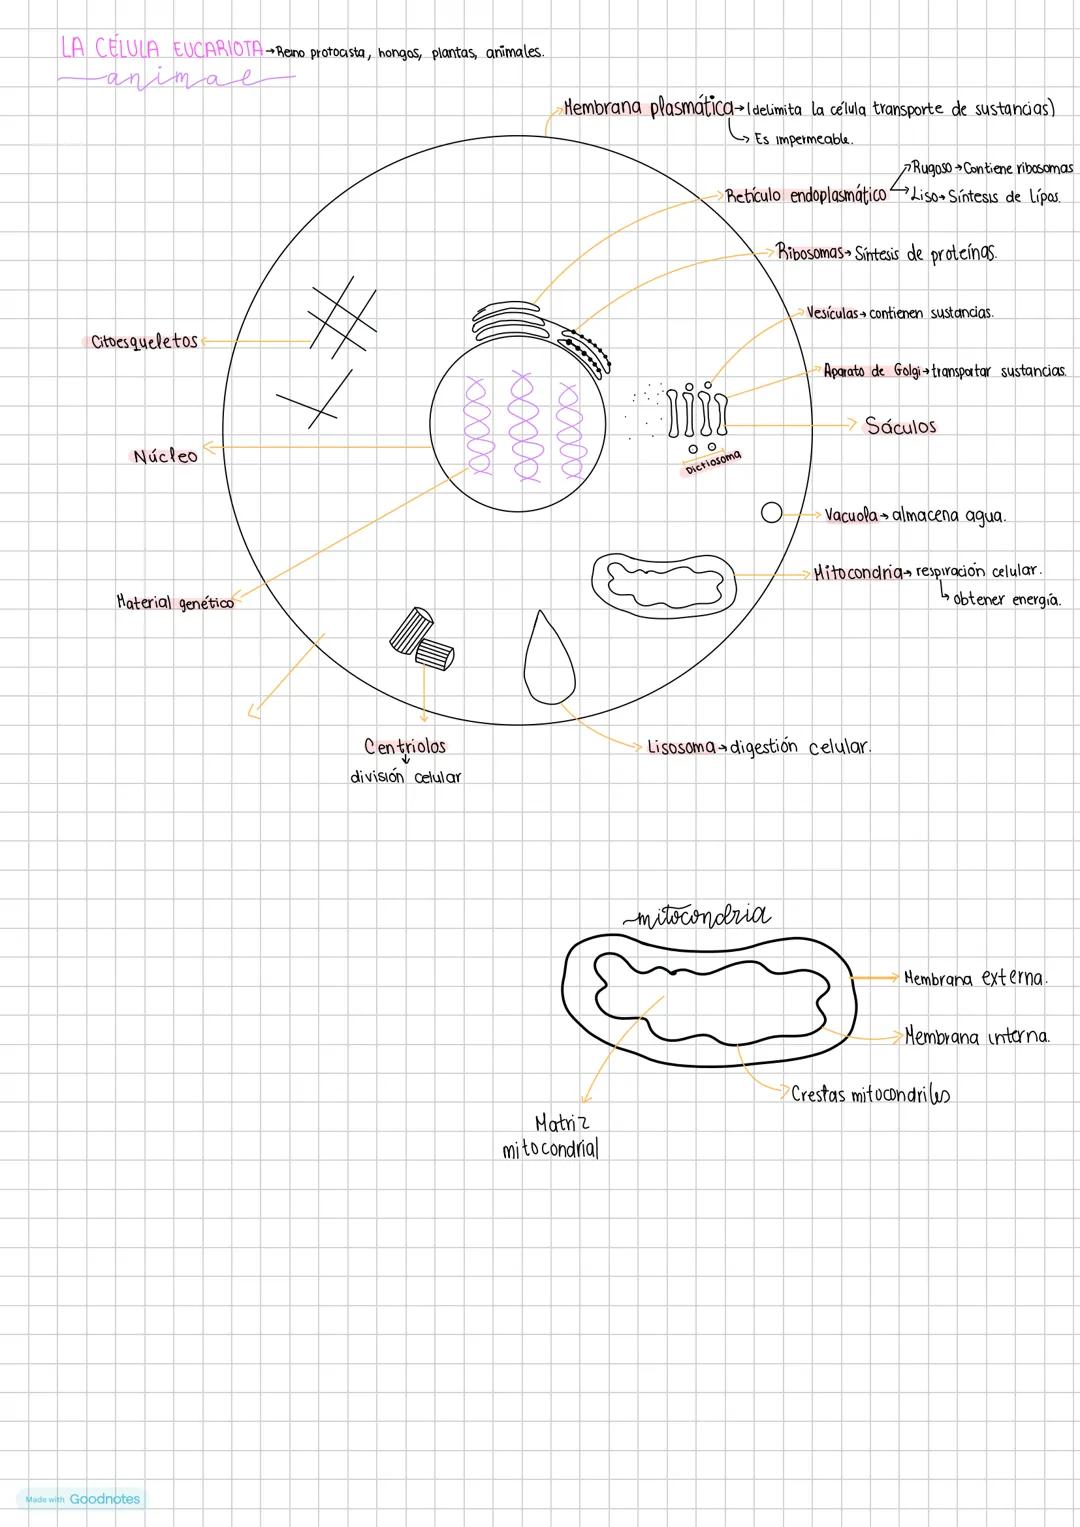 LA CÉLULA EUCARIOTA→Reino protocista, hongos, plantas, animales.
animal
Membrana plasmática→(delimita la célula transporte de sustancias)
Es impermeable.
Retículo endoplasmático
Rugoso→Contiene ribosomas
Liso→Síntesis de lípos.
Ribosomas→Síntesis de proteínas.
Vesículas→contienen sustancias.
Citoesqueletos
Aparato de Golgi→transportar sustancias.
Sáculos
Núcleo
Dictiosoma
Vacuola→almacena agua.
Mitocondria→respiración celular.
obtener energía.
Material genético
Centriolos
división celular
Lisosoma→digestión celular.
mitocondria
Membrana externa.
Membrana interna.
Crestas mitocondriles
Matriz
mitocondrial
Made with Goodnotes